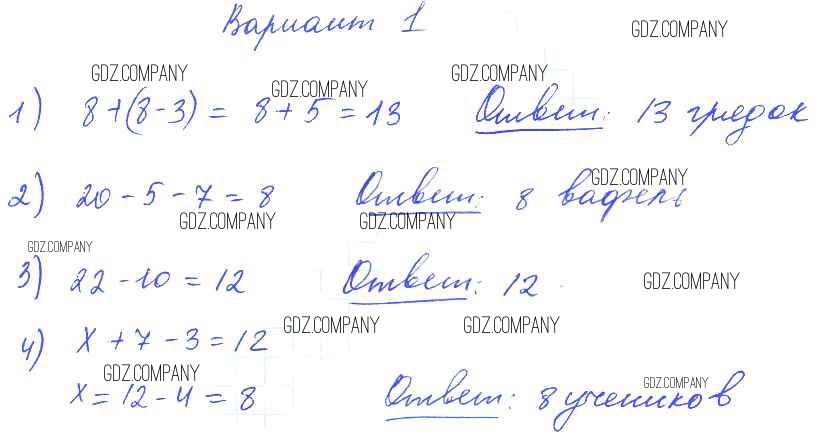 Вариант 1
GDZ.COMPANY
GDZ.COMPANY GDZ.COMPANY GDZ.COMPANY
1) 8+(8-3) = 8+5=13 Ответ: 13 грядок
GDZ.COMPANY
2) 20-5-7=8 Ответ: 8 вафель
GDZ.COMPANY GDZ.COMPANY
GDZ.COMPANY
3) 22-10=12 Ответ: 12
GDZ.COMPANY
GDZ.COMPANY GDZ.COMPANY
4) x+7-3=12
GDZ.COMPANY GDZ.COMPANY
x=12-4=8 Ответ: 8 учеников